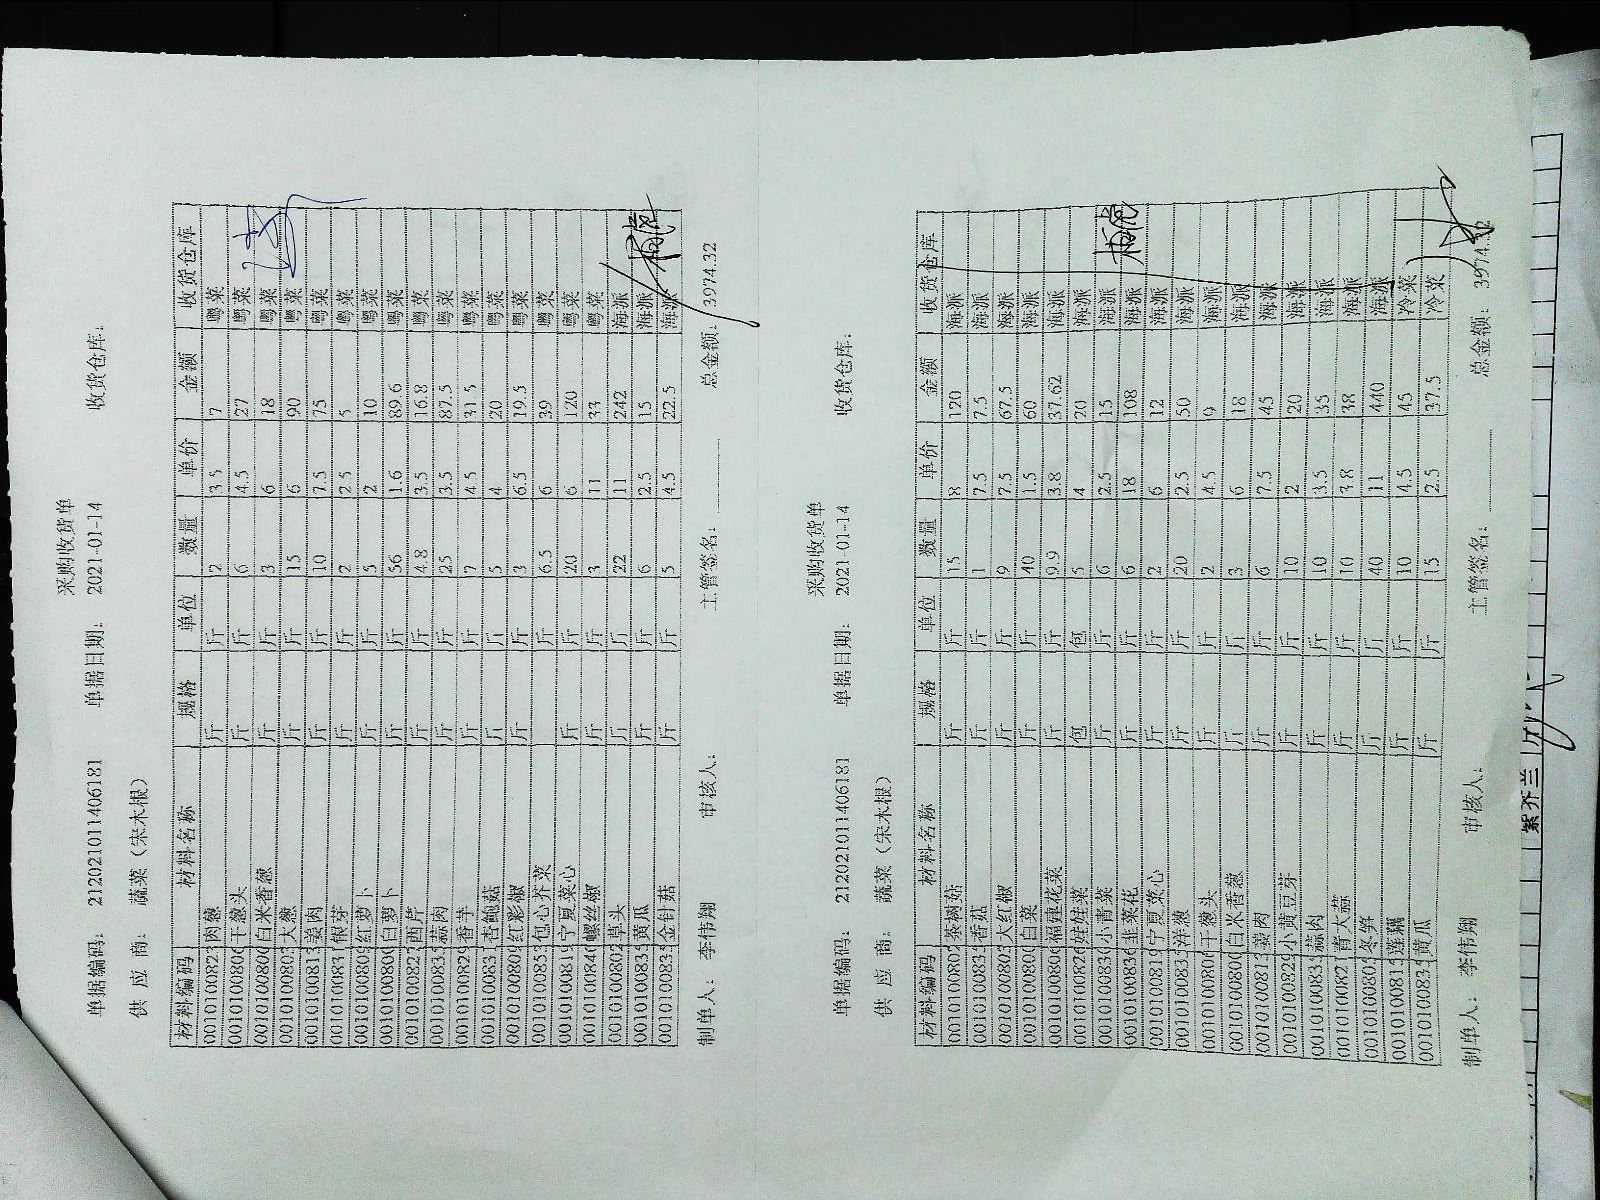 采购收货单
单据编码： 21202101140618l 单据日期： 2021-01-14 收货仓库：
供 应 商： 蔬菜（宋木根）
材料编码 材料名称 规格 单位 数量 单价 金额 收货仓库
0010100823 肉葱 斤 斤 2 3.5 7 粤菜
0010100806 干葱头 斤 斤 6 4.5 27 粤菜
0010100800 白米香葱 斤 斤 3 6 18 粤菜
0010100803 大葱 斤 斤 15 6 90 粤菜
0010100813 姜肉 斤 斤 10 7.5 75 粤菜
001010083 银芽 斤 斤 2 2.5 5 粤菜
0010100809 红萝卜 斤 斤 5 2 10 粤菜
0010100800 白萝卜 斤 斤 56 1.6 89.6 粤菜
0010100827 西芹 斤 斤 4.8 3.5 16.8 粤菜
0010100833 蒜肉 斤 斤 25 3.5 87.5 粤菜
0010100829 香芋 斤 斤 7 4.5 31.5 粤菜
001010083 杏鲍菇 斤 斤 5 4 20 粤菜
0010100809 红彩椒 斤 斤 3 6.5 19.5 粤菜
0010100853 包心芥菜 斤 6.5 6 39 粤菜
0010100819 宁夏菜心 斤 斤 20 6 120 粤菜
0010100840 螺丝椒 斤 斤 3 11 33 粤菜
0010100802 草头 斤 斤 22 11 242 海派
0010100835 黄瓜 斤 斤 6 2.5 15 海派
0010100833 金针菇 斤 斤 5 4.5 22.5 海派
制单人： 李伟翔 审核人： 主管签名： 总金额： 3974.32
采购收货单
单据编码： 212021011406181 单据日期： 2021-01-14 收货仓库：
供 应 商： 蔬菜（宋木根）
材料编码 材料名称 规格 单位 数量 单价 金额 收货仓库
0010100802 茶树菇 斤 斤 15 8 120 海派
0010100834 香菇 斤 斤 1 7.5 7.5 海派
0010100803 大红椒 斤 斤 9 7.5 67.5 海派
0010100800 白菜 斤 斤 40 1.5 60 海派
0010100806 福建花菜 斤 斤 9.9 3.8 37.62 海派
0010100826 娃娃菜 包 包 5 4 20 海派
0010100830 小青菜 斤 斤 6 2.5 15 海派
0010100836 韭菜花 斤 斤 6 18 108 海派
0010100819 宁夏菜心 斤 斤 2 6 12 海派
0010100835 洋葱 斤 斤 20 2.5 50 海派
0010100806 干葱头 斤 斤 2 4.5 9 海派
0010100800 白米香葱 斤 斤 3 6 18 海派
0010100813 姜肉 斤 斤 6 7.5 45 海派
0010100829 小黄豆芽 斤 斤 10 2 20 海派
0010100833 蒜肉 斤 斤 10 3.5 35 海派
0010100821 青大蒜 斤 斤 10 3.8 38 海派
0010100803 冬笋 斤 斤 40 11 440 海派
0010100815 莲藕 斤 斤 10 4.5 45 冷菜
0010100835 黄瓜 斤 斤 15 2.5 37.5 冷菜
制单人： 李伟翔 审核人： 主管签名： 总金额： 3974.32